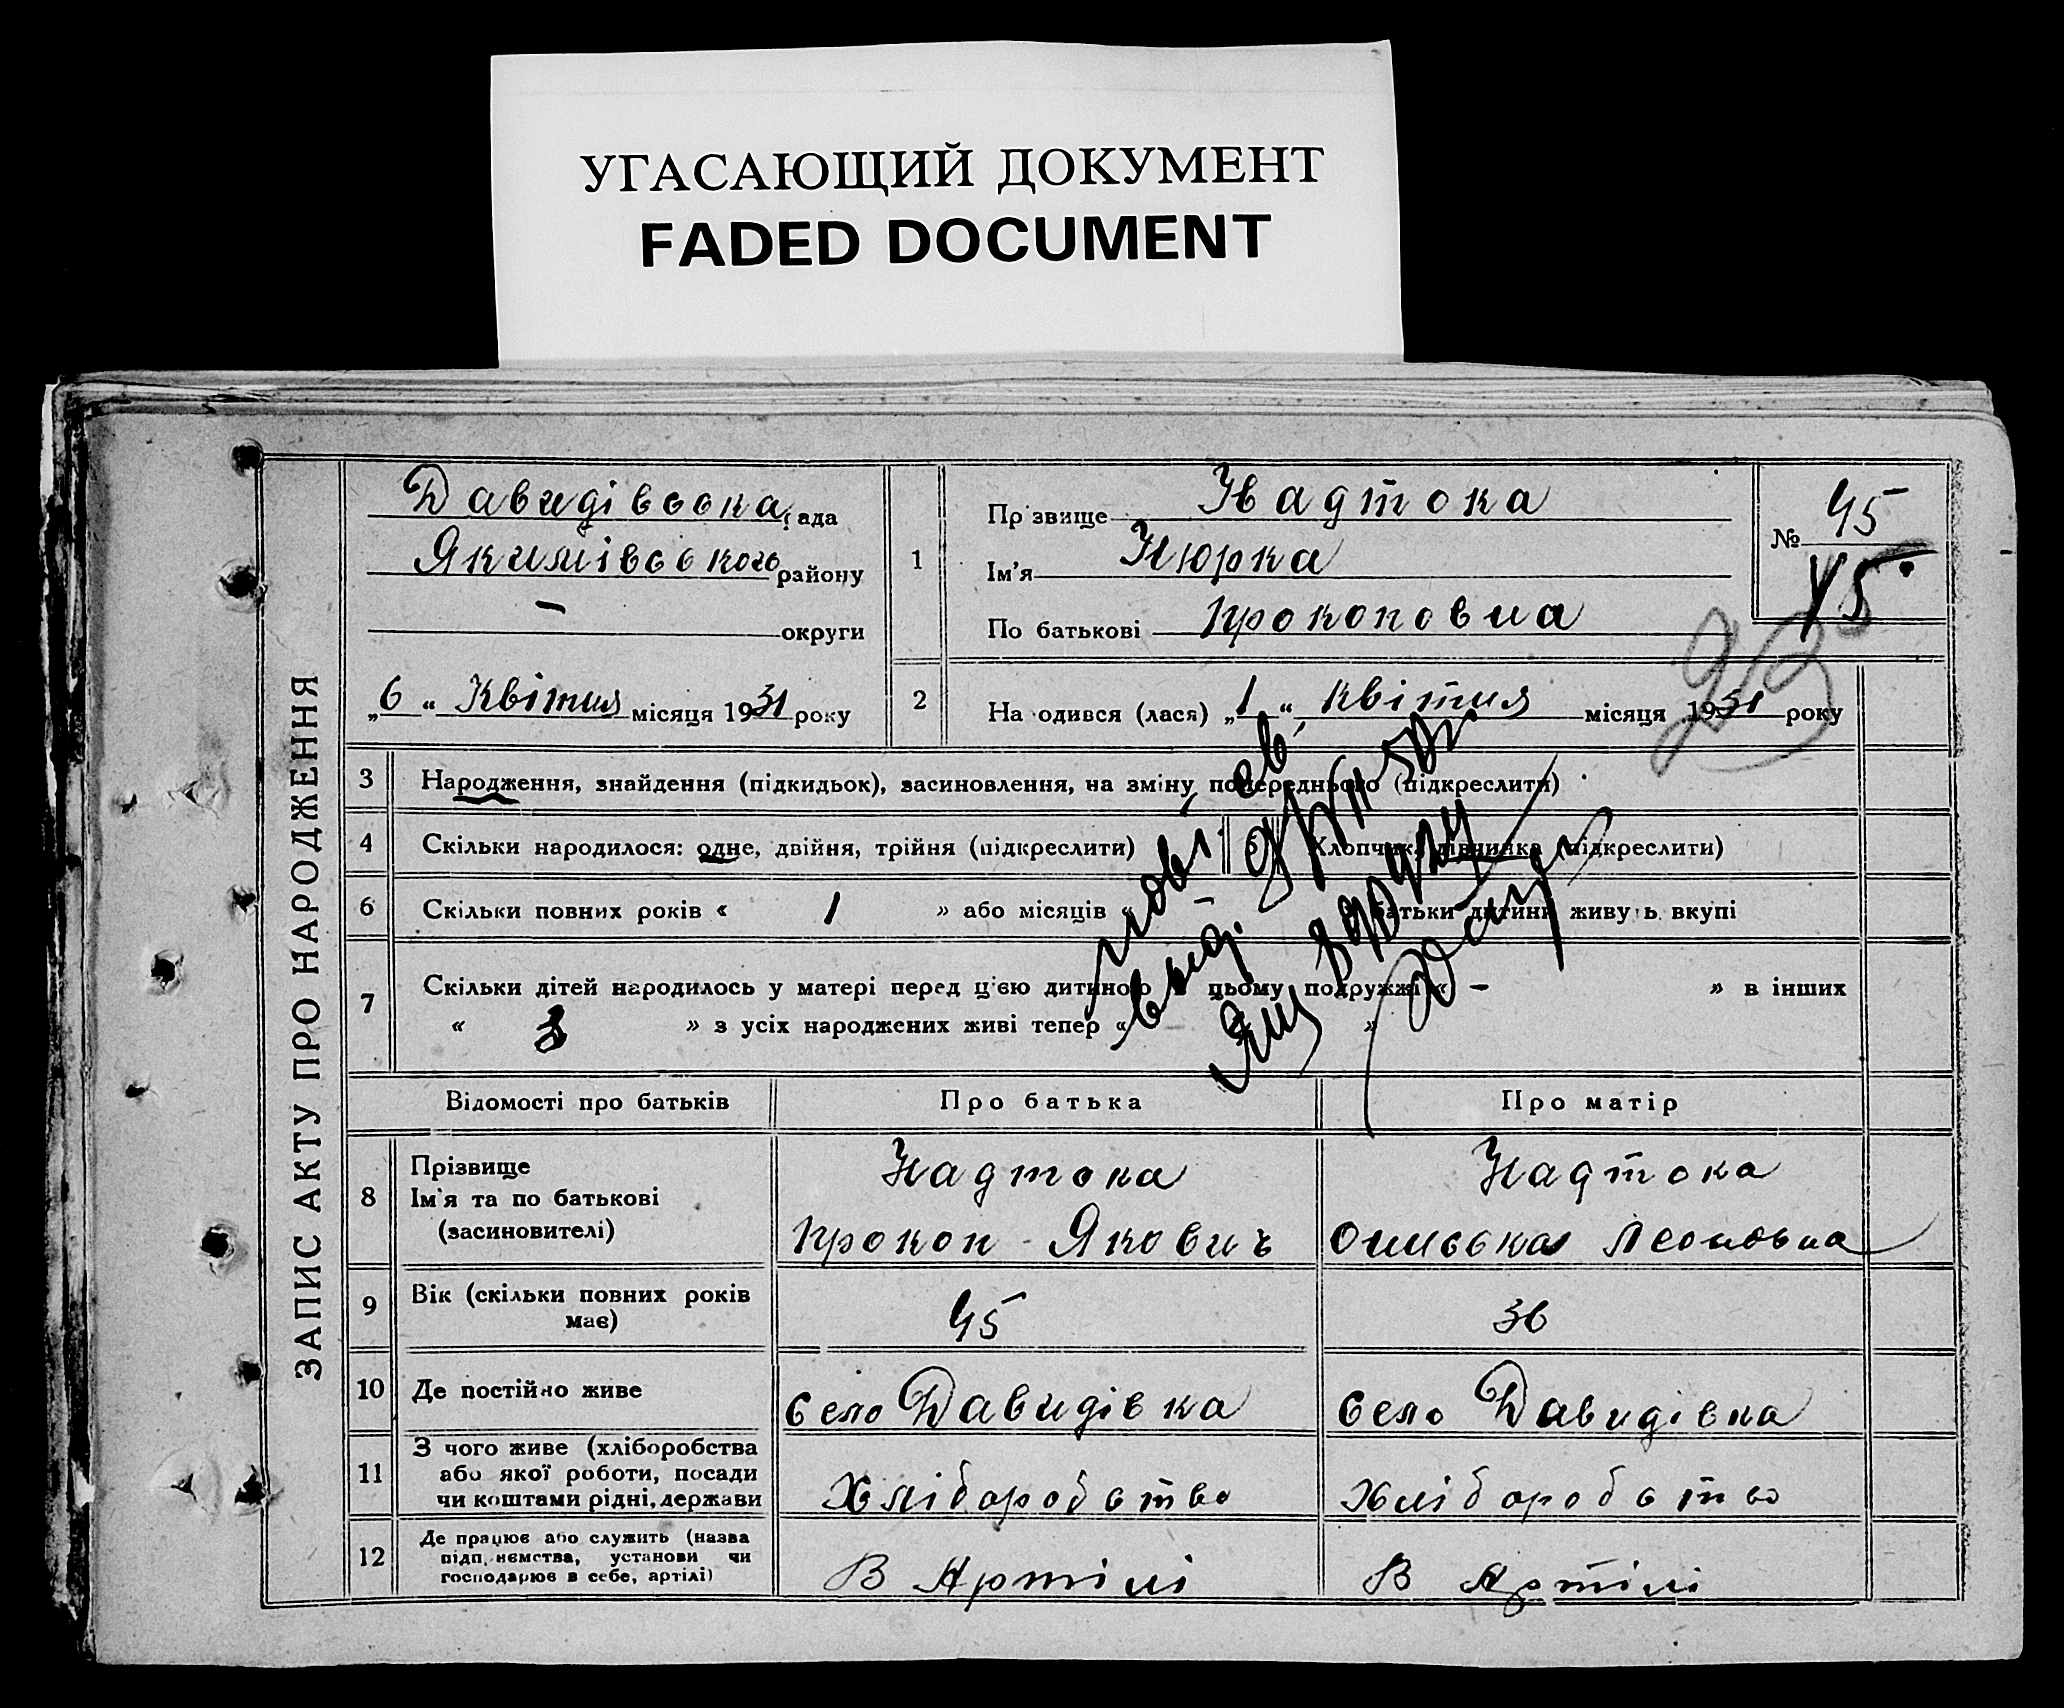 УГАСАЮЩИЙ ДОКУМЕНТ
FADED DOCUMENT
ЗАПИС АКТУ ПРО НАРОДЖЕННЯ
Давидівська рада
Якимівського району
— округи
„6“ Квітня місяця 1931 року
1
Прізвище Надтока
Ім'я Нюрка
По батькові Прокоповна
№ 45
45
2 Народився (лася) „1“ Квітня місяця 1931 року
3 Народження, знайдення (підкидьок), засиновлення, на зміну попереднього (підкреслити)
4 Скільки народилося: одне, двійня, трійня (підкреслити) 5 Хлопчик, дівчинка (підкреслити)
6 Скільки повних років « 1 » або місяців « батьки дитини живуть вкупі
7 Скільки дітей народилось у матері перед ц'єю дитиною в цьому подружжі « – » в інших
« 3 » з усіх народжених живі тепер « »
Відомості про батьків Про батька Про матір
8 Прізвище Надтока Надтока
Ім'я та по батькові
(засиновителі) Прокоп Якович
9 Вік (скільки повних років має) 45 36
10 Де постійно живе село Давидівка село Давидівка
11 З чого живе (хліборобства
або якої роботи, посади
чи коштами рідні, держави Хліборобство Хліборобство
12 Де працює або служить (назва
підприємства, установи чи
господарює в себе, артілі) В Артілі В Артілі